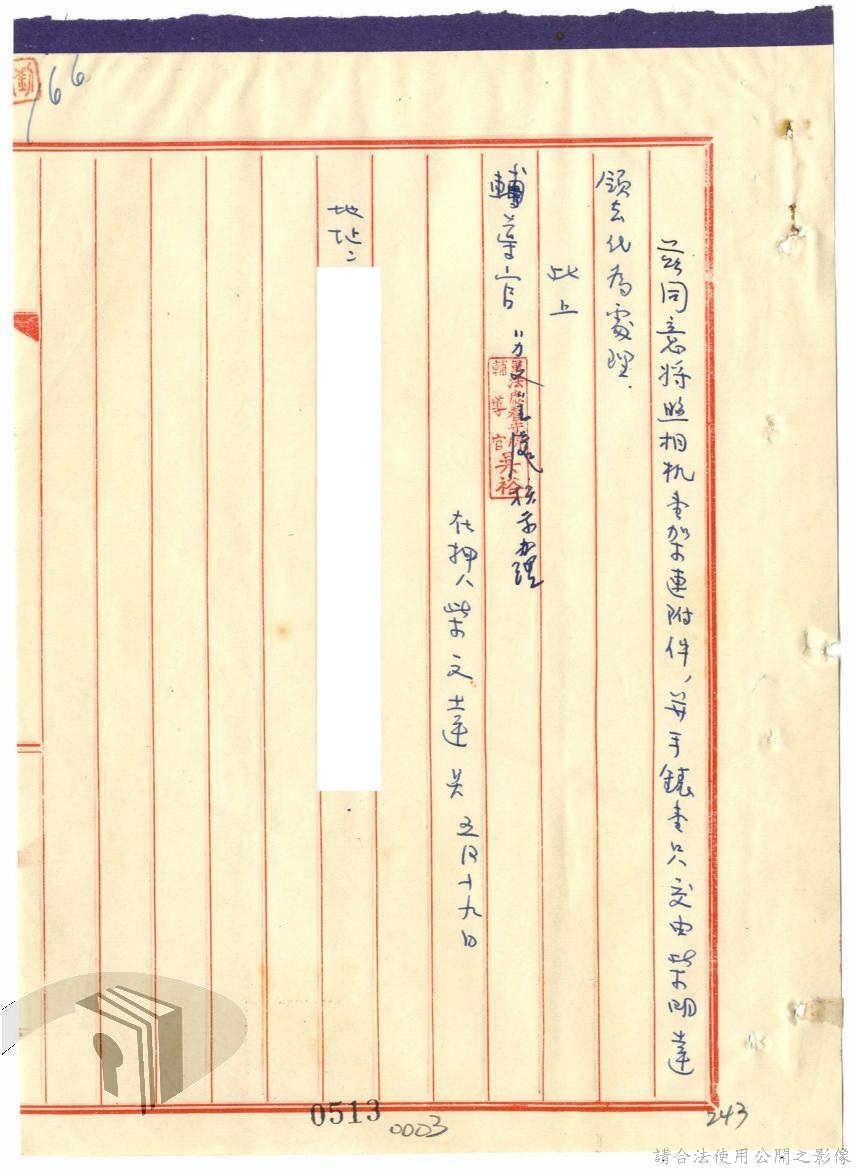 茲同意將照相机壹架連附件，並手錶壹只交由柴明達
領去代為處理.
此上
輔導官
軍法處看守所
輔導官吳裕
核示辦理
在押人柴文達 吳 五月十九日
地址：
劉
166
0513
0003
243
請合法使用公開之影像